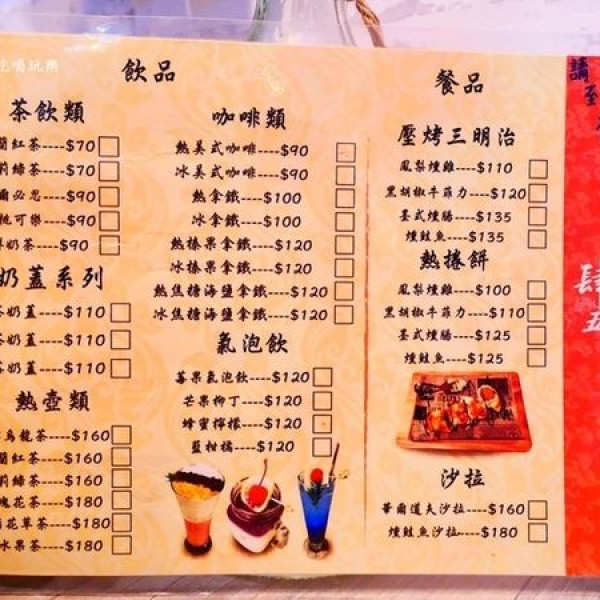 吃喝玩樂
飲品
茶飲類
蘭紅茶----$70
莉綠茶----$70
爾必思----$90
桃可樂----$90
奶茶----$90
奶蓋系列
茶奶蓋----$110
茶奶蓋----$110
茶奶蓋----$110
熱壺類
烏龍茶----$160
蘭紅茶----$160
莉綠茶----$160
瑰花茶----$180
花草茶----$180
水果茶----$180
咖啡類
熱美式咖啡----$90
冰美式咖啡----$90
熱拿鐵----$100
冰拿鐵----$100
熱榛果拿鐵----$120
冰榛果拿鐵----$120
熱焦糖海鹽拿鐵---$120
冰焦糖海鹽拿鐵---$120
氣泡飲
莓果氣泡飲----$120
芒果柳丁----$120
蜂蜜檸檬----$120
藍柑橘----$120
餐品
壓烤三明治
鳳梨燻雞----$110
黑胡椒牛菲力----$120
墨式燻腸----$135
燻鮭魚----$135
熱捲餅
鳳梨燻雞----$100
黑胡椒牛菲力----$110
墨式燻腸----$125
燻鮭魚----$125
沙拉
華爾道夫沙拉----$160
燻鮭魚沙拉----$180
請至
肆
五